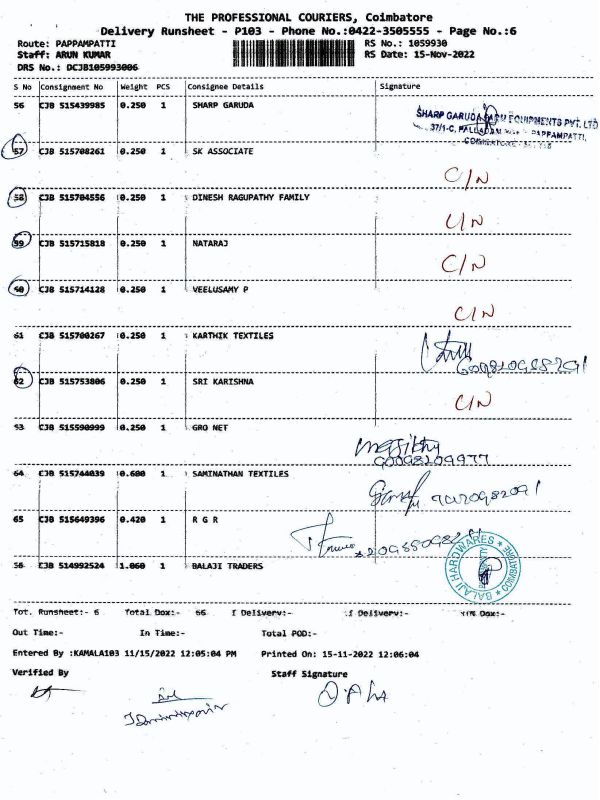 THE PROFESSIONAL COURIERS, Coimbatore
Delivery Runsheet - P103 - Phone No.:0422-3505555 - Page No.:6
Route: PAPPAMPATTI RS No.: 1059930
Staff: ARUN KUMAR RS Date: 15-Nov-2022
DRS No.: DCJB105993006
S No Consignment No Weight PCS Consignee Details Signature
56 CJB 515439985 0.250 1 SHARP GARUDA
SHARP GARUDA FARM EQUIPMENTS PVT. LTD
37/1-C, PALLADAM PAPPAMPATTI,
57 CJB 515708261 0.250 1 SK ASSOCIATE C/N
58 CJB 515704556 0.250 1 DINESH RAGUPATHY FAMILY C/N
59 CJB 515715818 0.250 1 NATARAJ C/N
60 CJB 515714128 0.250 1 VEELUSAMY P C/N
61 CJB 515700267 0.250 1 KARTHIK TEXTILES
62 CJB 515753806 0.250 1 SRI KARISHNA C/N
63 CJB 515590999 0.250 1 GRO NET
64 CJB 515744039 0.600 1 SAMINATHAN TEXTILES
65 CJB 515649396 0.420 1 R G R
BALAJI HARDWARES COIMBATORE
56 CJB 514992524 1.060 1 BALAJI TRADERS
Tot. Runsheet:- 6 Total Dox:- 66 Delivery:- Delivery:- Dox:-
Out Time:- In Time:- Total POD:-
Entered By :KAMALA103 11/15/2022 12:05:04 PM Printed On: 15-11-2022 12:06:04
Verified By Staff Signature